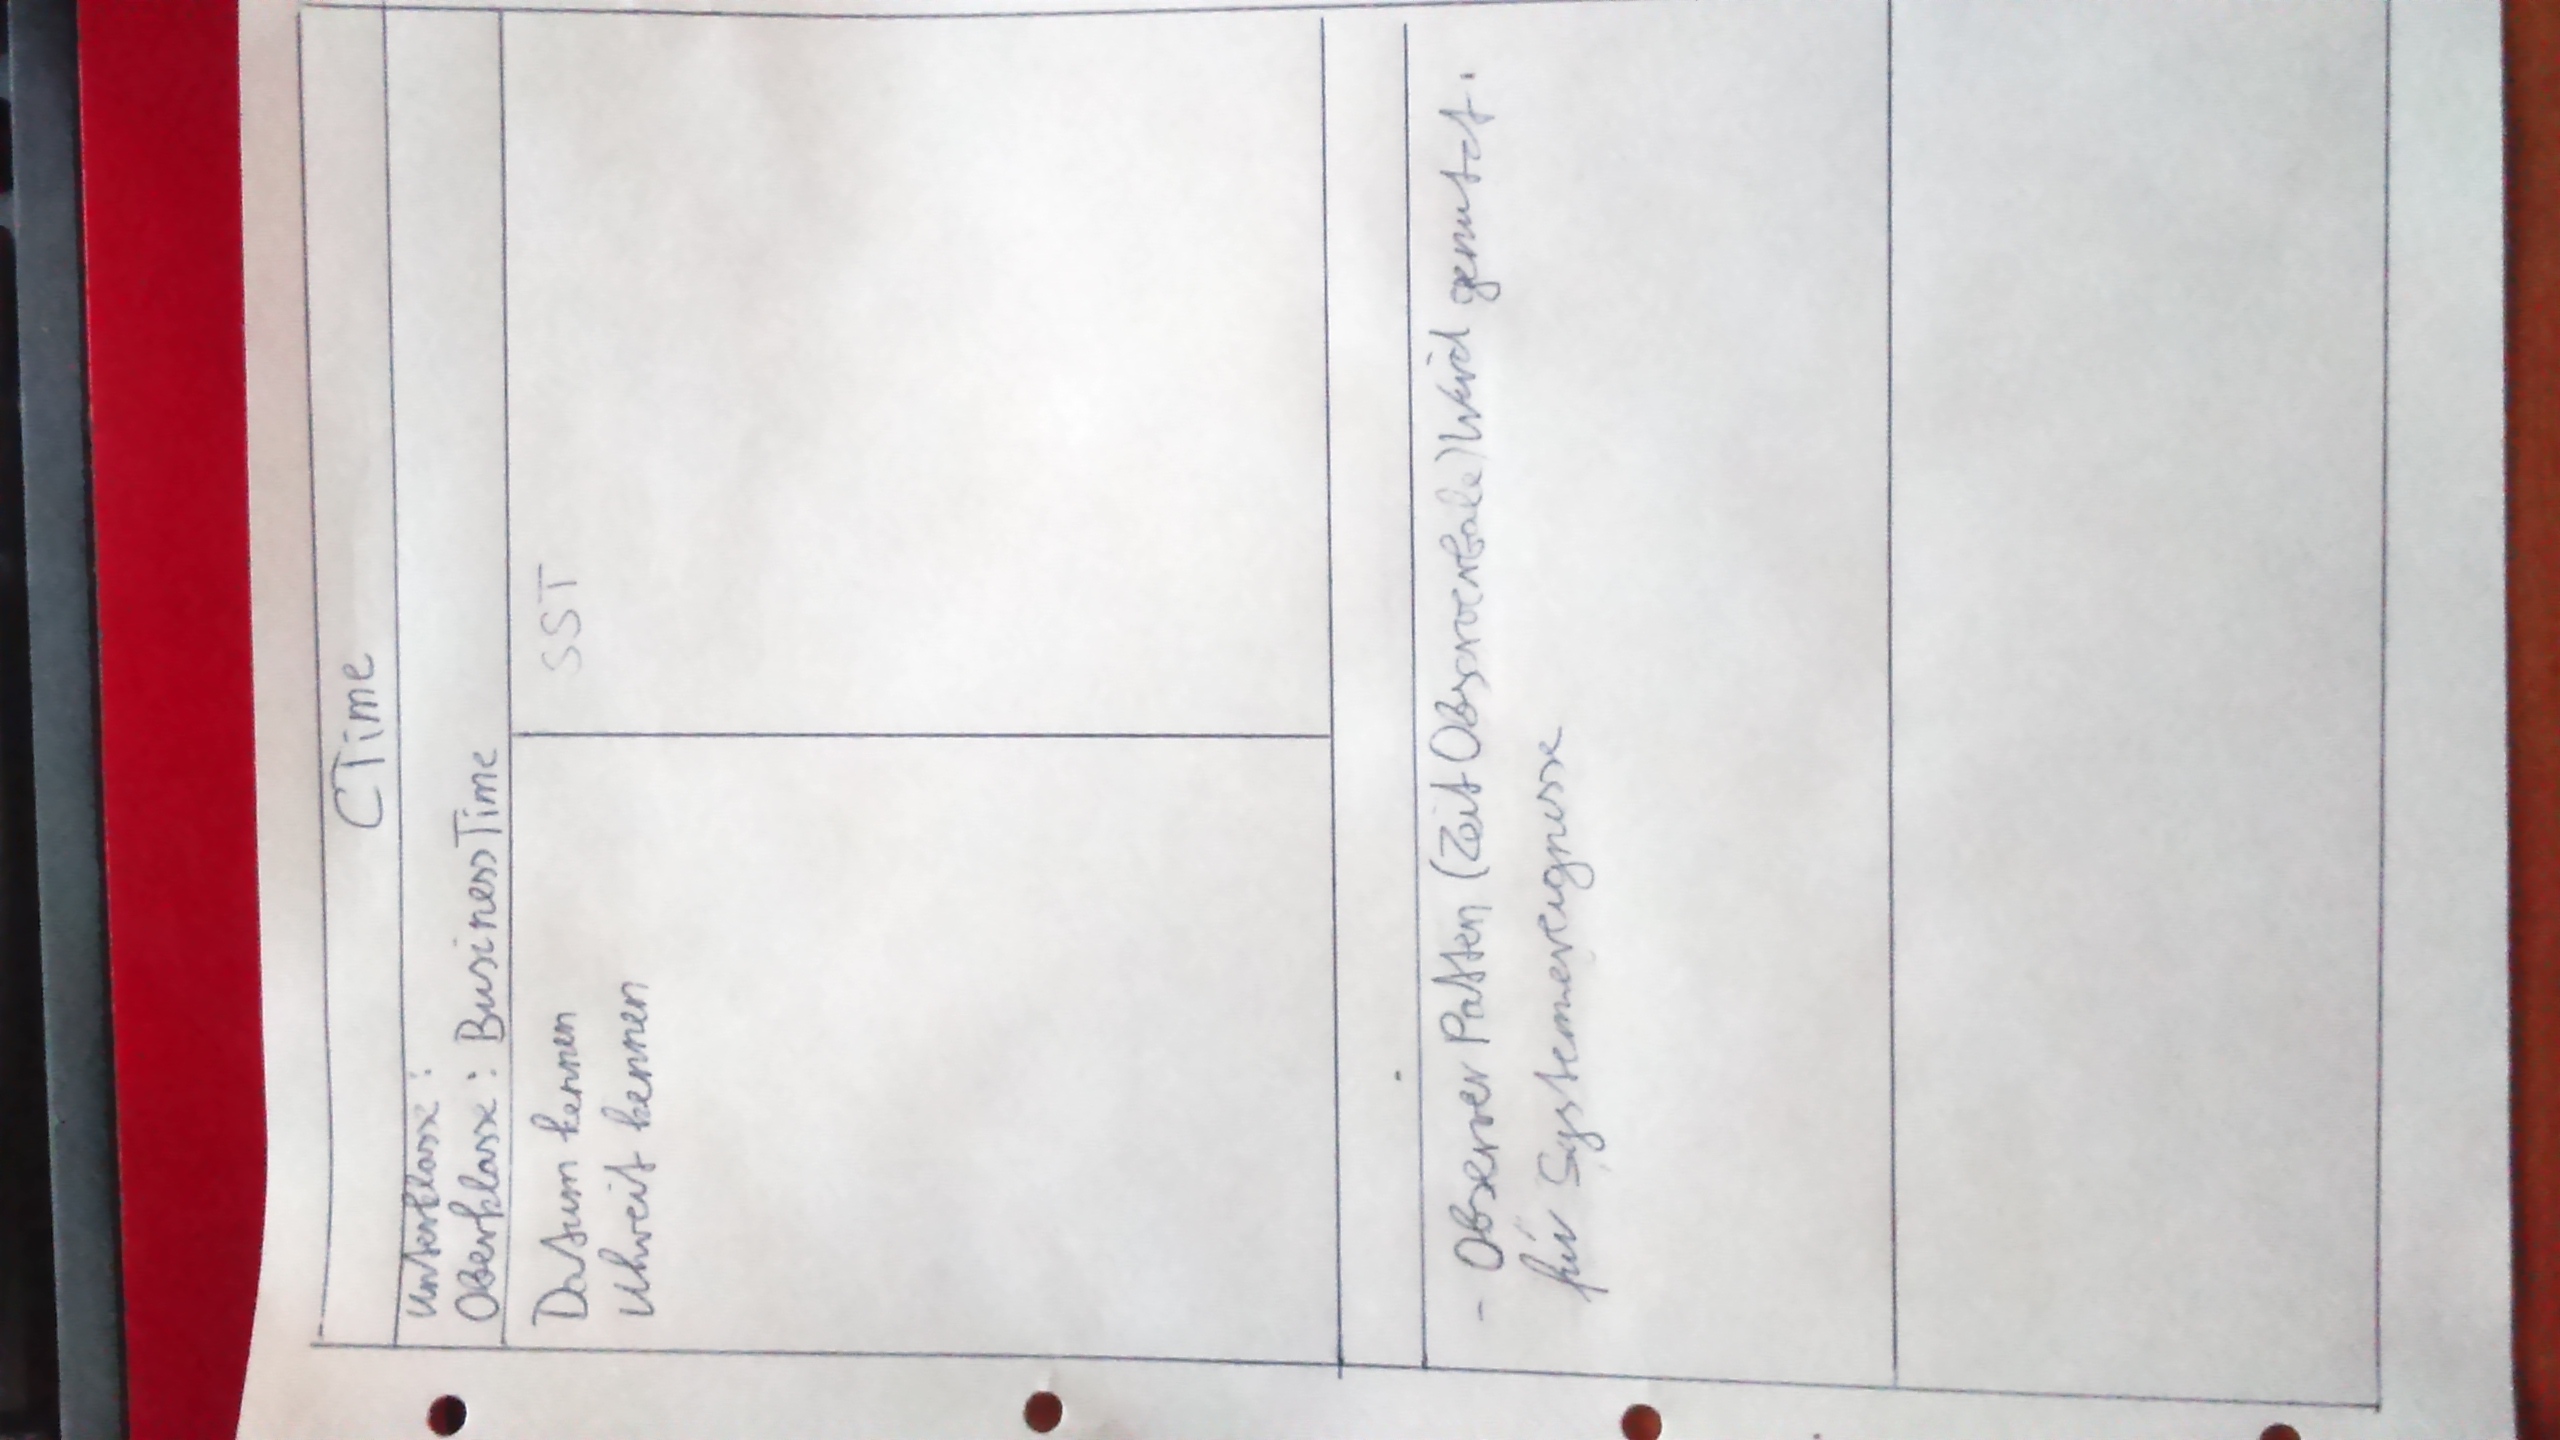 CTime
Unterklasse :
Oberklasse : BusinessTime
Datum kennen
SST
Uhreit kennen
- Observer Patten (Zeit Observerbale) Wird genutzt.
für Systemereignisse